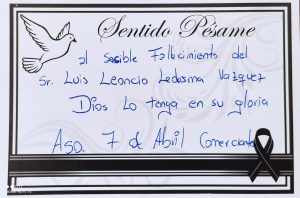 Sentido Pésame
al Sencible Fallecimiento del
Sr. Luis Leoncio Ledesma Vazquez
Dios Lo tenga en su gloria
Aso. 7 de Abril Comerciante